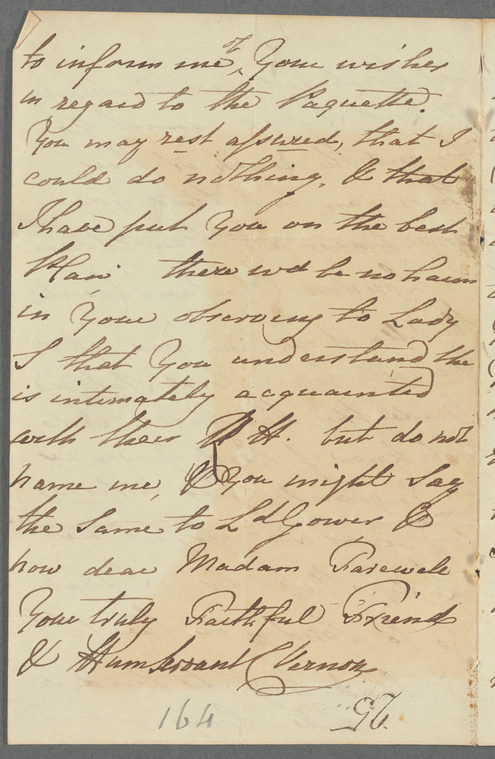 to inform me of Your wishes
in regard to the Paquette.
You may rest assured, that I
could do nothing, & that
I have put You on the best
Plan. there wd be no harm
in Your observing to Lady
S that You understand She
is intimately acquainted
with their R H. but do not
name me, & You might say
the same to Ld Gower &
now dear Madam Farewell
Your truly Faithful Friend
& Hum Servant C Vernon
164